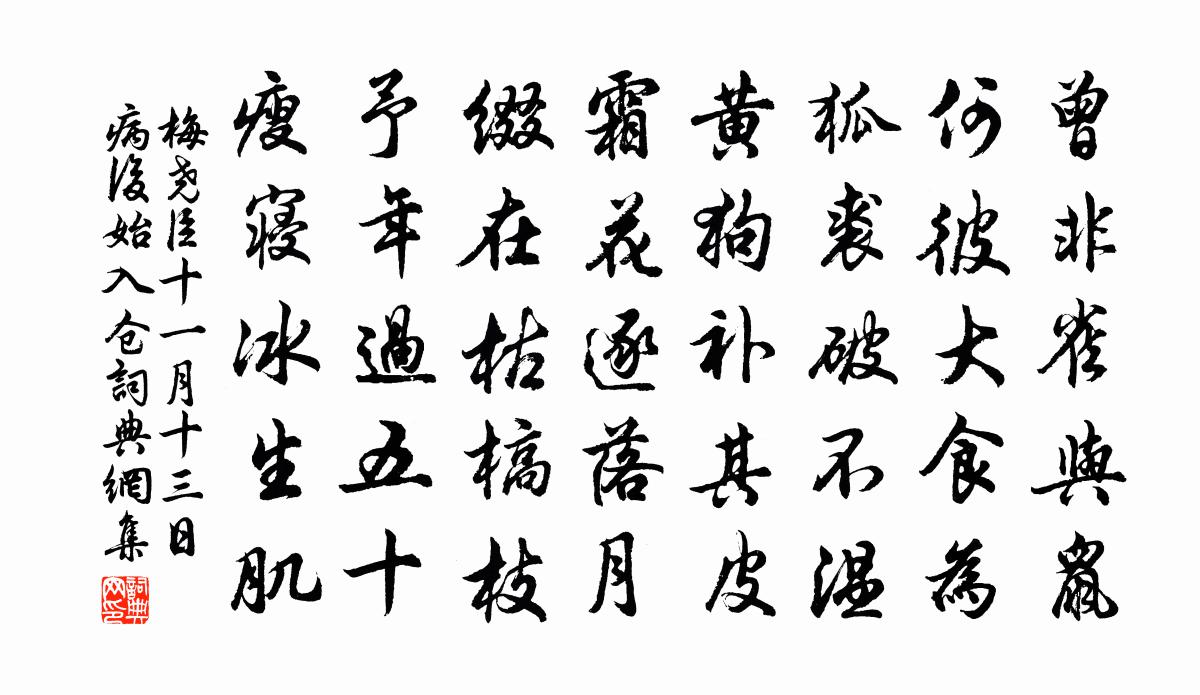 曾非雀與鼠
何彼大食為
狐裘破不温
黄狗补其皮
霜花逐落月
缀在枯槁枝
予年過五十
瘦寝冰生肌
梅尧臣十一月十三日
病後始入仓詞典網集
詞典网印